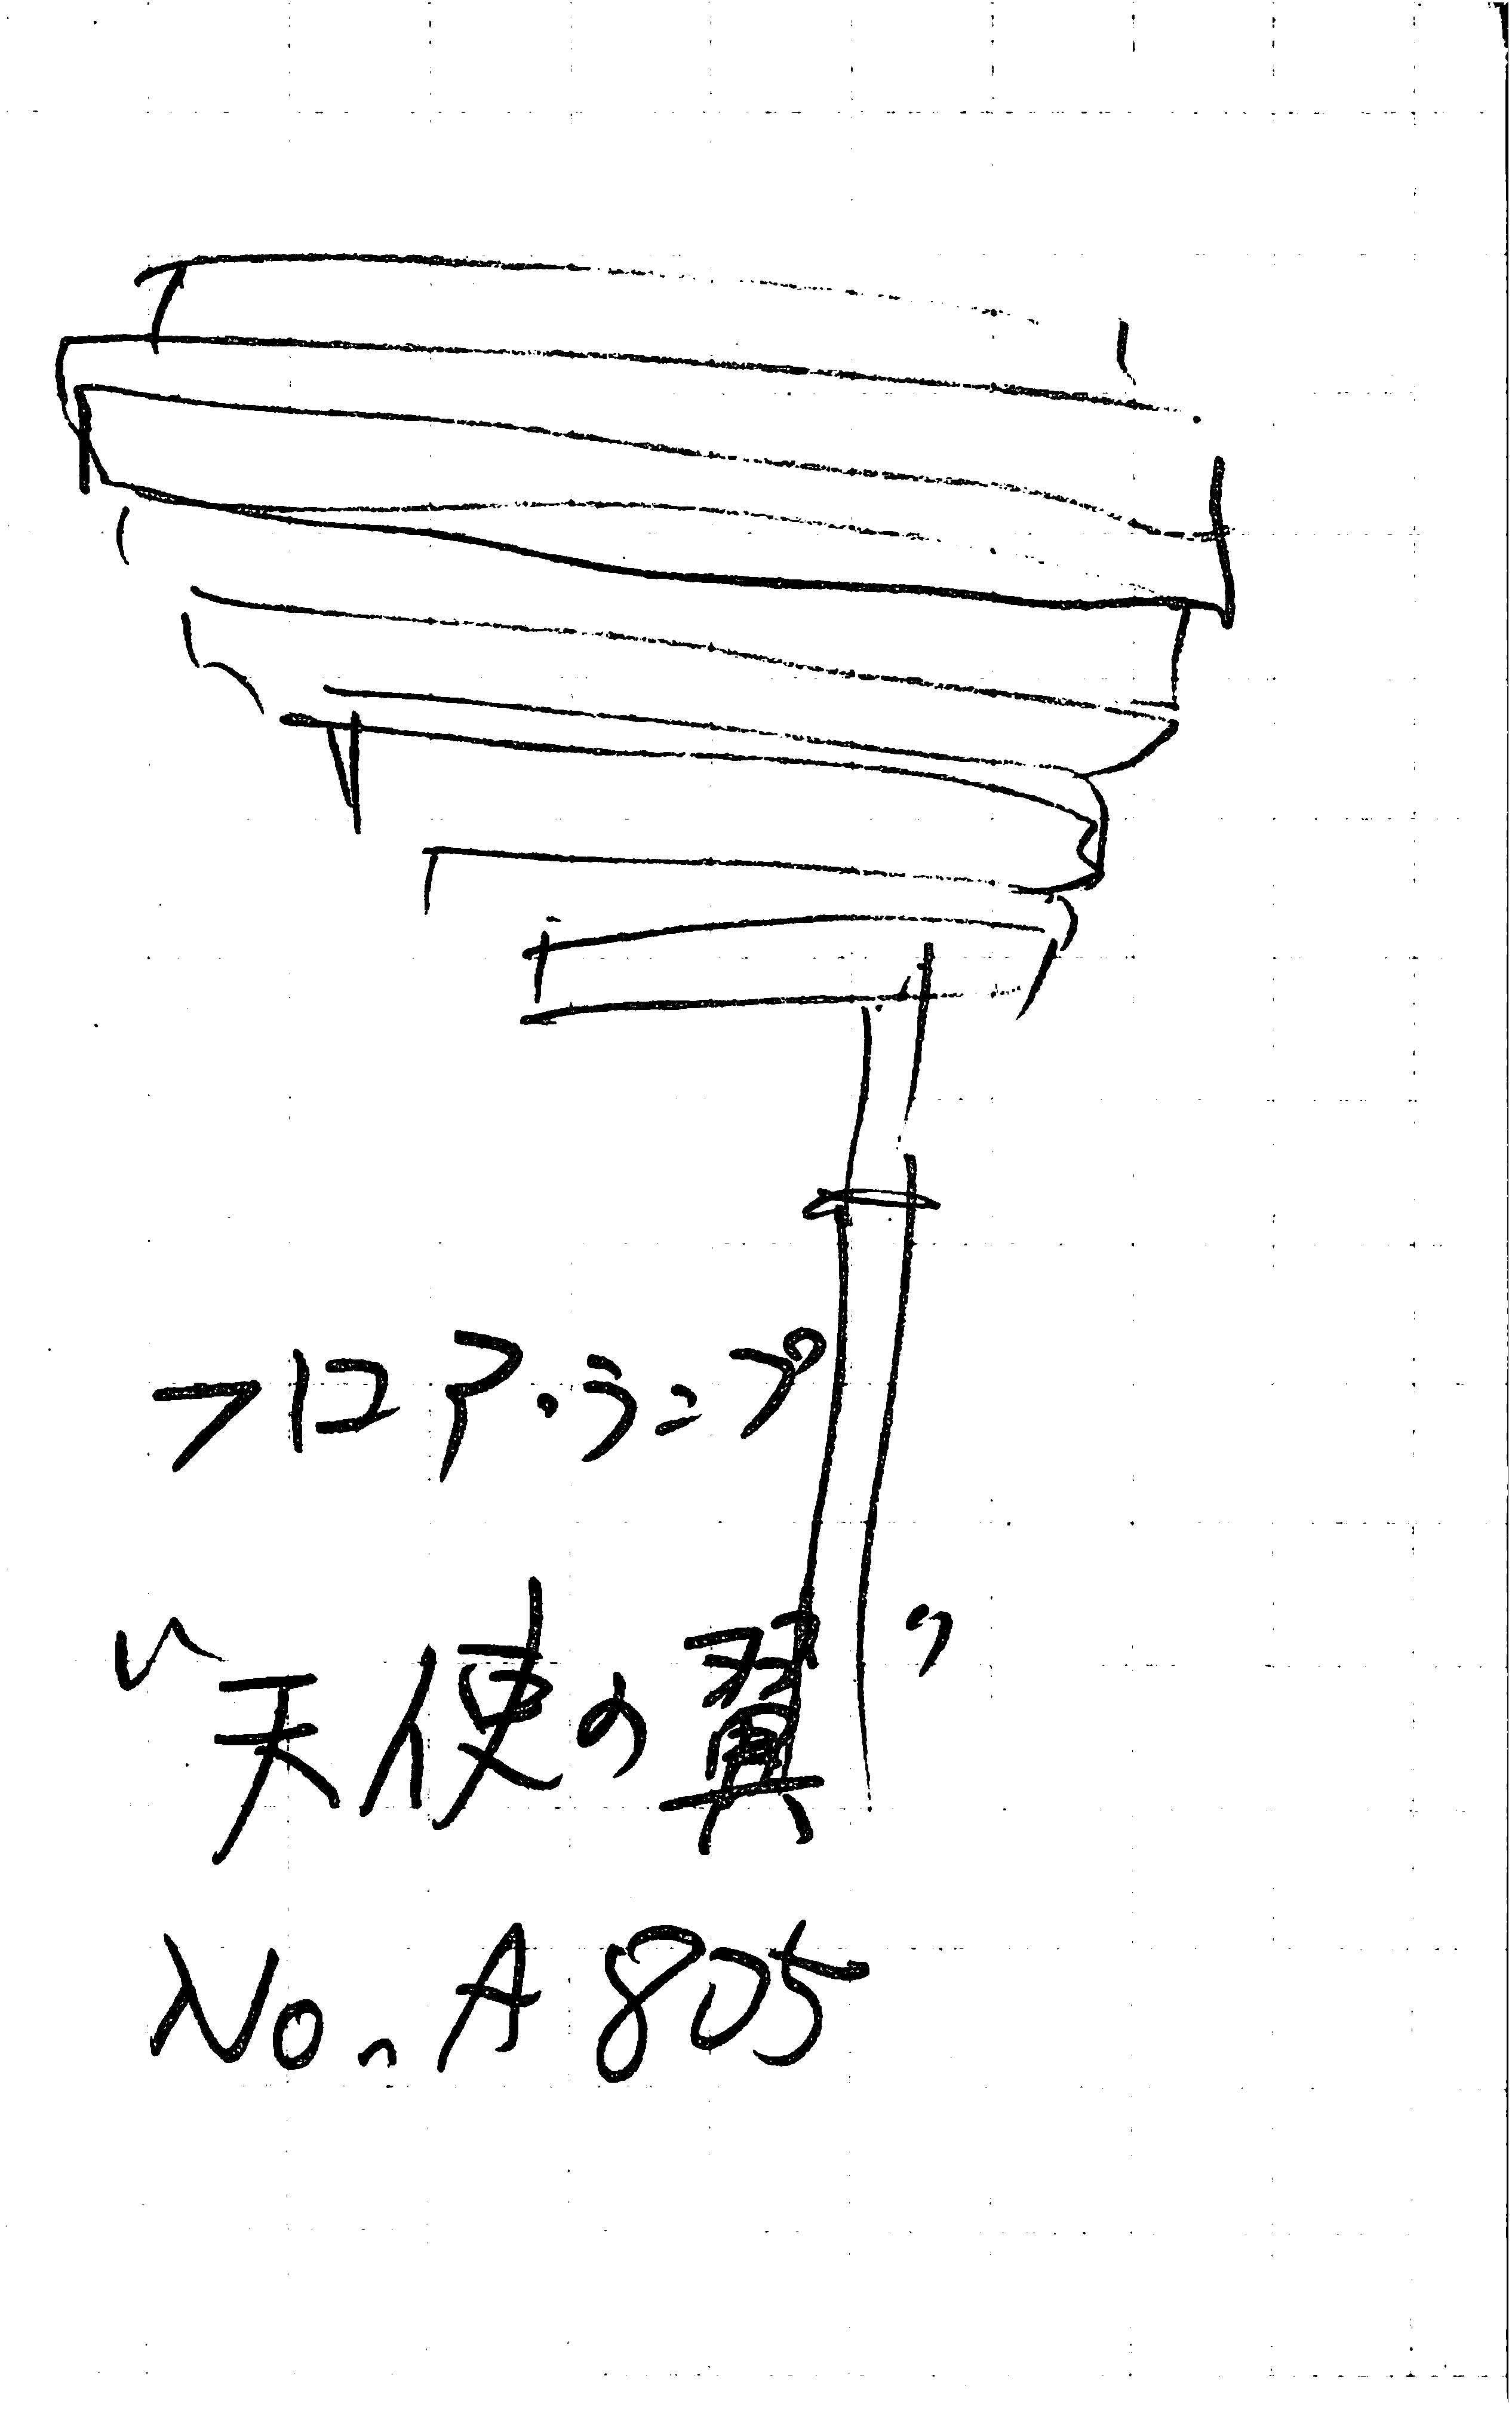 フロア・ランプ
“天使の翼”
No. A805